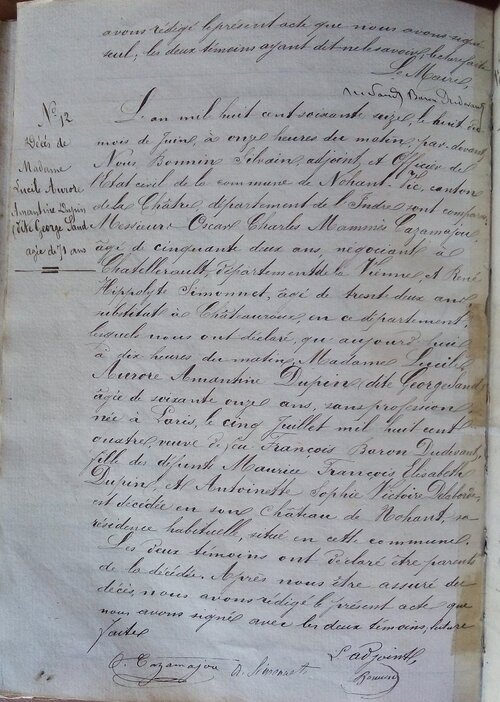 avons rédigé le présent acte que nous avons signé
seul, les deux témoins ayant dit ne le savoir, lecture faite
Le Maire,
Baron Dudevant
N° 12
Décès de
Madame
Lucile Aurore
Amantine Dupin
(dite George Sand
agée de 71 ans
L'an mil huit cent soixante seize, le huit du
mois de Juin, à onze heures du matin, par-devant
Nous Bonnin Silvain, adjoint, et Officier de
l'Etat civil de la commune de Nohant-Vic, canton
de la Châtre, département de l'Indre sont comparus
Messieurs Oscar Charles Mammès Cazamajou
âgé de cinquante deux ans, négociant à
Chatellerault, département de la Vienne, et René
Hippolyte Simonnet, âgé de trente deux ans
substitut à Châteauroux, en ce département,
lesquels nous ont déclaré, que aujourd'hui
à dix heures du matin, Madame Lucile
Aurore Amantine Dupin (dite George Sand)
âgée de soixante onze ans, sans profession
née à Paris, le cinq Juillet mil huit cent
quatre, veuve de feu François Baron Dudevant,
fille des défunts Maurice François Elisabeth
Dupin, et Antoinette Sophie Victoire Delaborde
est décédée en son Château de Nohant, sa
résidence habituelle, situé en cette commune.
Les deux témoins ont déclaré être parents
de la décédée. Après nous être assuré du
décès, nous avons rédigé le présent acte que
nous avons signé avec les deux témoins, lecture
faite
O. Cazamajou R. Simonnet
L'adjoint,
Bonnin